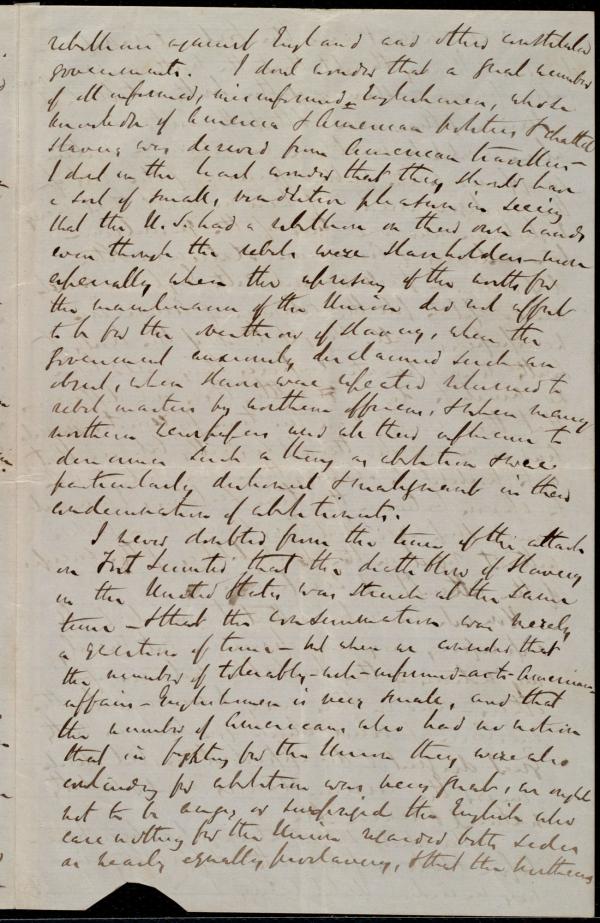 rebellion against England and other constituted
governments. I dont wonder that a great number
of ill informed, misinformed Englishmen, whose
knowledge of America & American politics & chattel
slavery was derived from American travellers -
I dont in the least wonder that they should have
a sort of small, vindictive pleasure in seeing
that the U.S. had a rebellion on their own hands
even though the rebels were slaveholders - more
especially when the uprising of the north for
the maintenance of the Union did not affect
to be for the overthrow of slavery, when the
Government anxiously disclaimed such an
object, when slaves were repeated returned to
rebel masters by northern officers, & when many
northern newspapers used all their influence to
denounce such a thing as abolition & were
particularly dishonest & malignant in their
condemnation of abolitionists.
I never doubted from the time of the attack
on Fort Sumter that the death blow of Slavery
in the United States was struck at the same
time - & that the consummation was merely
a question of time - but when we consider that
the number of tolerably-well-informed-as-to-American-
affairs - Englishmen is very small, and that
the number of Americans who had no notion
that in fighting for the Union they were also
contending for abolition was very great, we ought
not to be angry or surprised the English who
care nothing for the Union regarded both sides
as nearly equally proslavery, & that the northerners